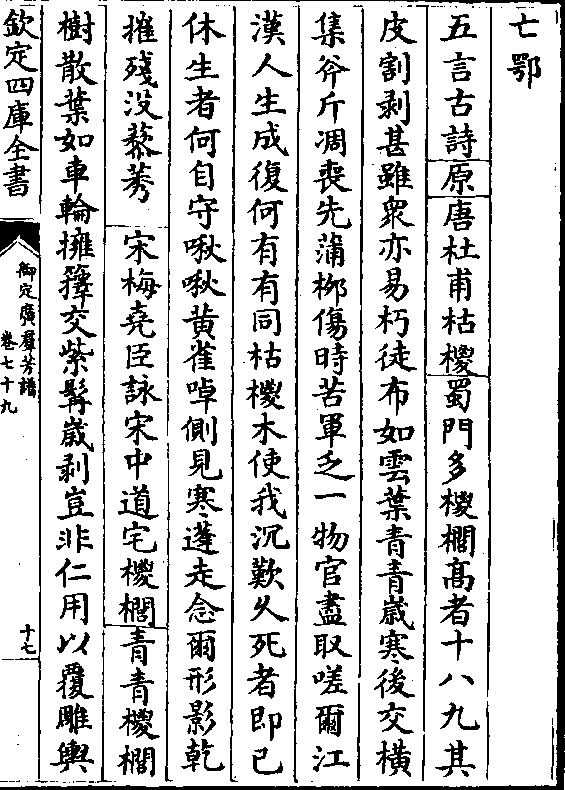 七鄂
五言古詩原唐杜甫枯㯶蜀門多㯶櫚髙者十八九其
皮割剥甚雖衆亦易朽徒布如雲葉青青歳寒後交横
集斧斤凋喪先蒲栁傷時苦軍乏一物官盡取嗟爾江
漢人生成復何有有同枯㯶木使我沉歎乆死者即已
休生者何自守啾啾黄雀啅側見寒蓬走念爾形影乾
摧殘没藜莠　宋梅堯臣詠宋中道宅㯶櫚青青㯶櫚
樹散葉如車輪擁籜交紫髯歳剥豈非仁用以覆雕輿
欽定四庫全書
御定廣羣芳譜
卷七十九
十七